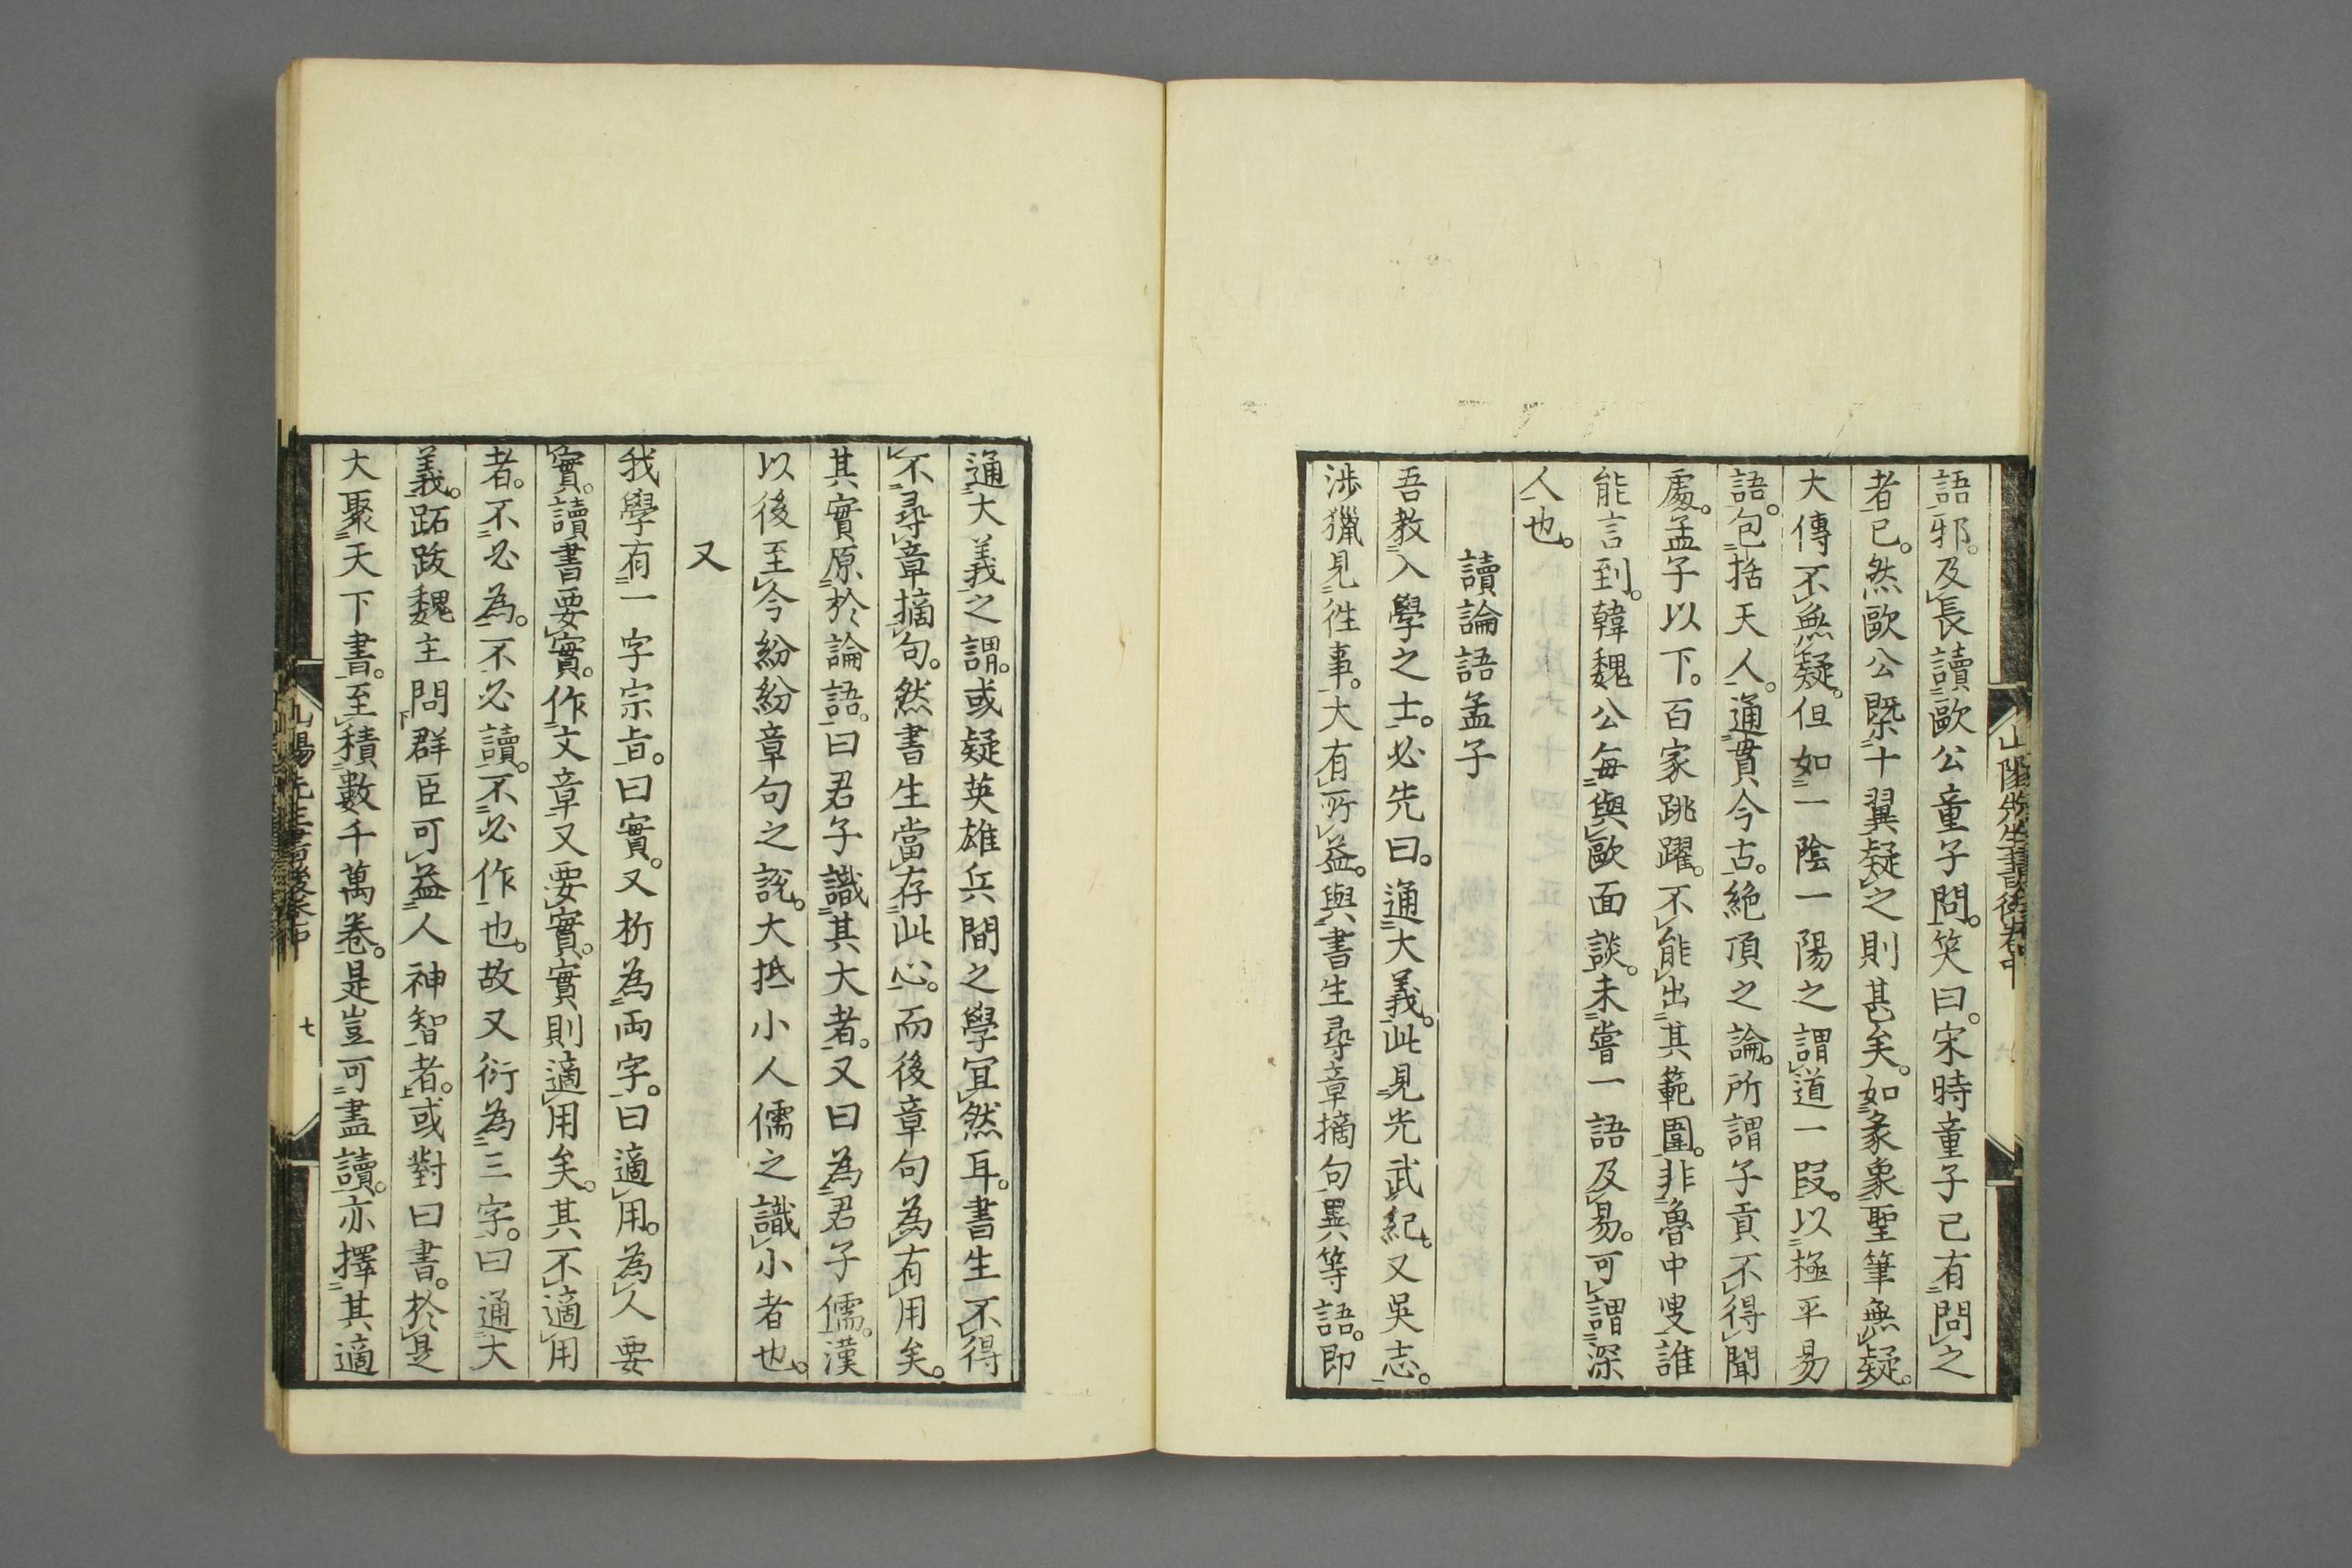 語邪。及長讀歐公童子問。笑曰。宋時童子已有問之
者已。然歐公槩十翼疑之則甚矣。如彖象聖筆無疑。
大傳不無疑。但如一陰一陽之謂道一段。以極平易
語。包括天人。通貫今古。絶頂之論。所謂子貢不得聞
處。孟子以下。百家跳躍。不能出其範圍。非魯中叟誰
能言到。韓魏公每與歐面談。未嘗一語及易。可謂深
人也。
讀論語孟子
吾教入學之士。必先曰。通大義。此見光武紀。又吳志。
涉獵見徃事。大有所益。與書生尋章摘句異等語。即
通大義之謂。或疑英雄兵間之學宜然耳。書生不得
不尋章摘句。然書生當存此心。而後章句為有用矣。
其實原於論語。曰君子識其大者。又曰為君子儒。漢
以後至今紛紛章句之說。大抵小人儒之識小者也。
又
我學有一字宗旨。曰實。又析為両字。曰適用。為人要
實。讀書要實。作文章又要實。實則適用矣。其不適用
者。不必為。不必讀。不必作也。故又衍為三字。曰通大
義。跖跋魏主問群臣可益人神智者。或對曰書。於是
大聚天下書。至積數千萬卷。是豈可盡讀。亦擇其適
山陽先生書後卷中
七